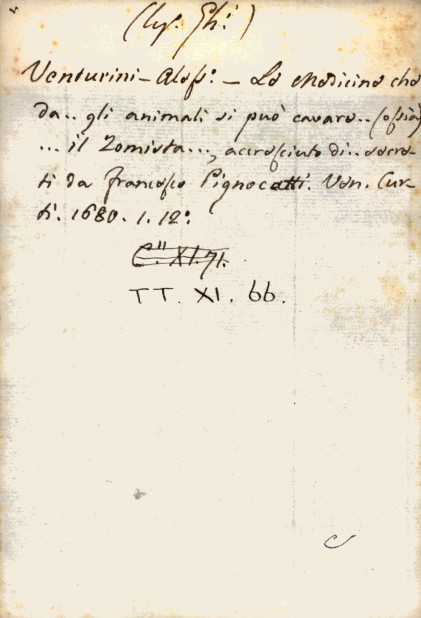 (Leg. Ghi.)
Venturini – Aless:º – La Medicina che
da.. gli animali si può cavare.. (ossia)
... il Zomista..., accresciuto di.. secre-
ti da Francesco Pignocatti. Ven. Cur-
ti. 1680. 1. 12º.
C" XI.71.
TT. XI. 66.
C